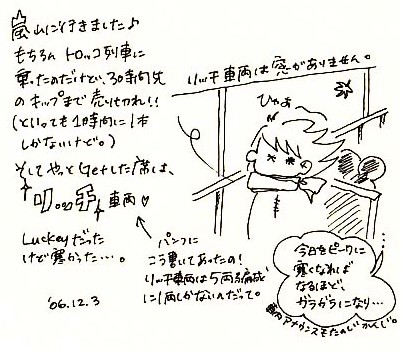 嵐山に行きました♪
もちろん トロッコ列車に
乗ったのだけど、30時間先
のキップまで売り切れ!!
(といっても1時間に1本
しかないけど。)
そしてやっとGetした席は、
リッチ車両♡
Luckeyだった
けど寒かった…。
'06.12.3
リッチ車両は窓がありません。
ひゃょ
パンフに
こう書いてあったの!
リッチ車両は5両編成
に1両しかないのだって。
今日をピークに
寒くなれば
なるほど、
ガラガラになり…
車内アナウンスもたのしいかんじ。